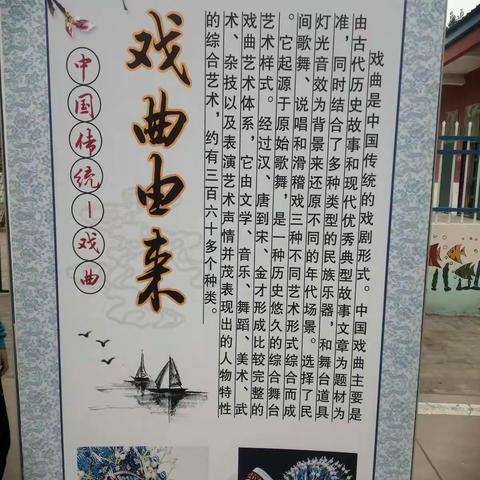 中国传统—戏曲
戏曲由来
戏曲是中国传统的戏剧形式。中国戏曲主要是
由古代历史故事和现代优秀典型故事文章为题材为
准，同时结合了多种类型的民族乐器，和舞台道具
灯光音效为背景来还原不同的年代场景。选择了民
间歌舞、说唱和滑稽戏三种不同艺术形式综合而成
。它起源于原始歌舞，是一种历史悠久的综合舞台
艺术样式。经过汉、唐到宋、金才形成比较完整的
戏曲艺术体系，它由文学、音乐、舞蹈、美术、武
术、杂技以及表演艺术声情并茂表现出的人物特性
的综合艺术，约有三百六十多个种类。